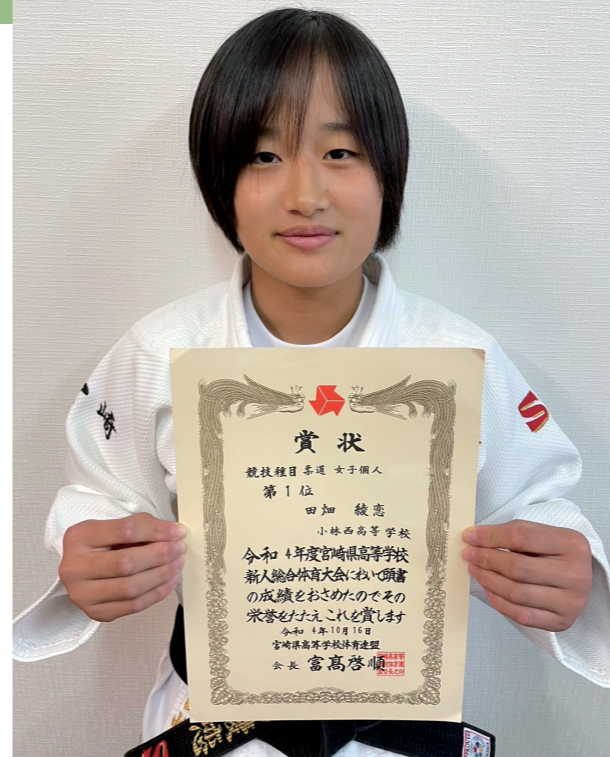 賞状
競技種目 柔道 女子個人
第 1 位
田畑 綾恋
小林西高等学校
令和 4年度宮崎県高等学校
新人総合体育大会において頭書
の成績をおさめたのでその
栄誉をたたえこれを賞します
令和 4年10月16日
宮崎県高等学校体育連盟
会長 富髙啓順
崎
綾恋